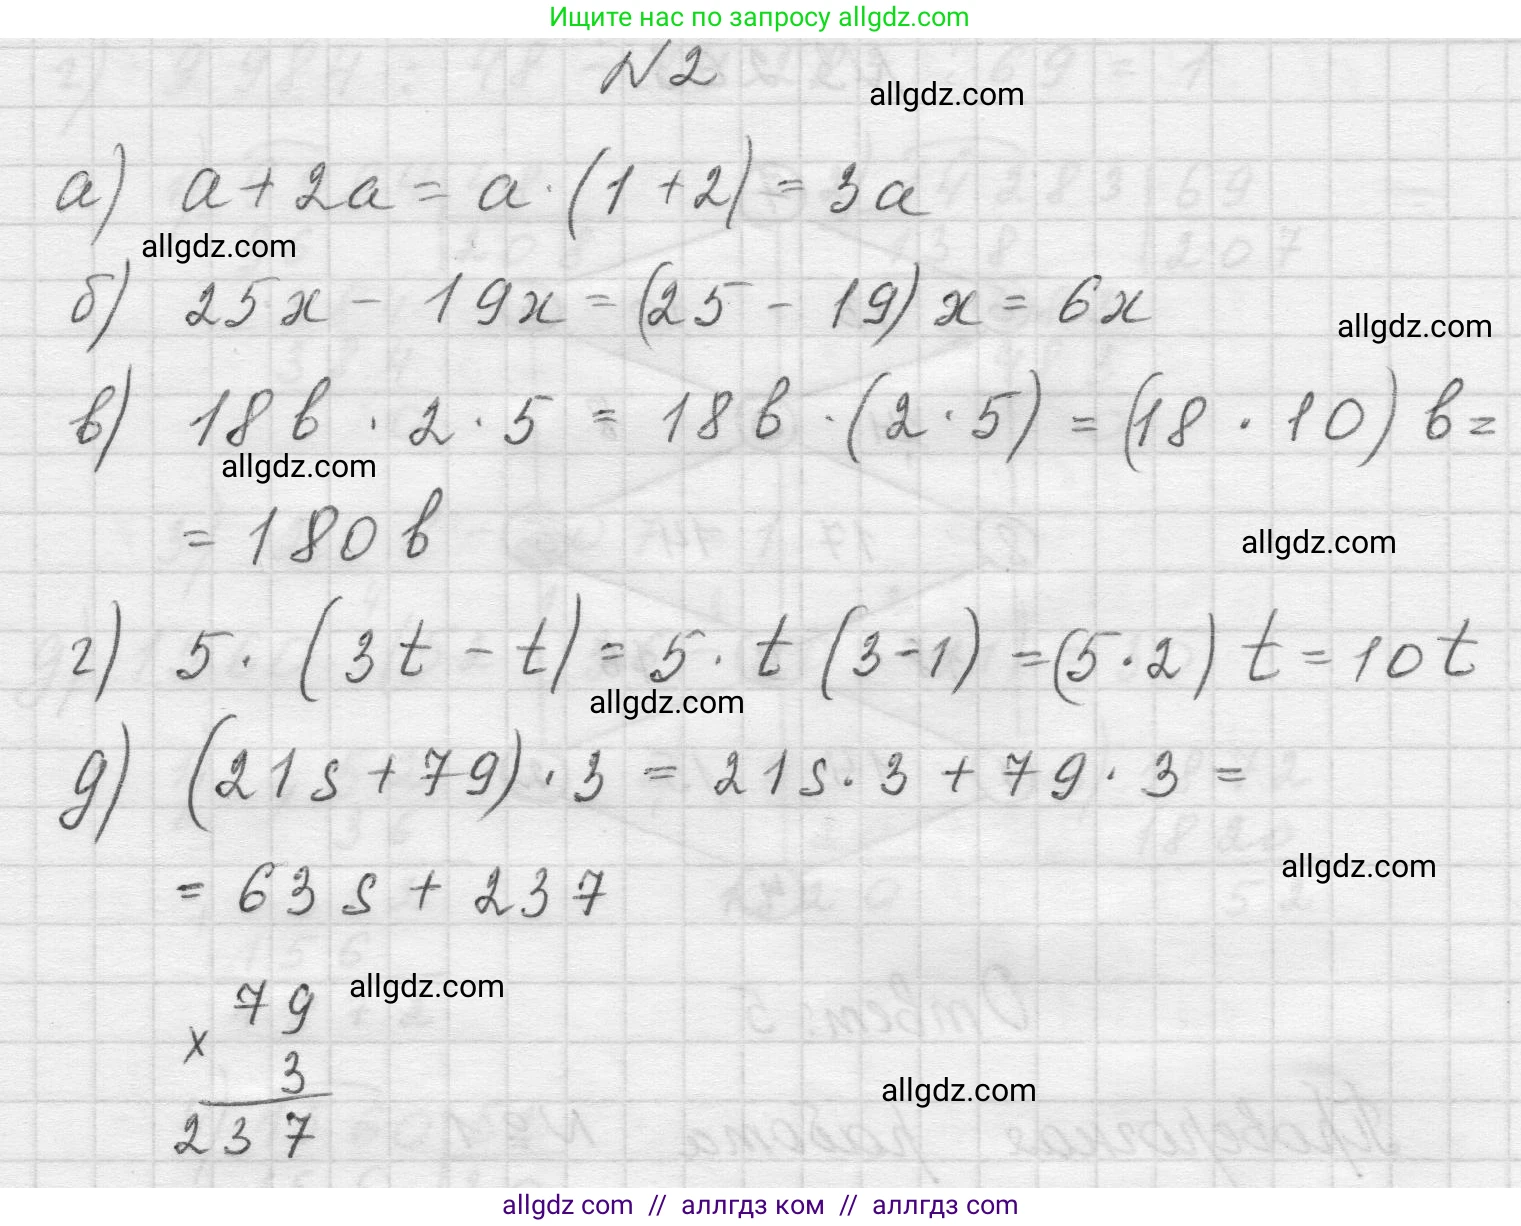 Ищите нас по запросу allgdz.com
№2
allgdz.com
а) a + 2a = a · (1 + 2) = 3a
allgdz.com
б) 25x - 19x = (25 - 19) x = 6x
allgdz.com
в) 18b · 2 · 5 = 18b · (2 · 5) = (18 · 10) b =
allgdz.com
= 180b
allgdz.com
г) 5 · (3t - t) = 5 · t (3-1) = (5 · 2) t = 10t
allgdz.com
д) (21s + 79) · 3 = 21s · 3 + 79 · 3 =
allgdz.com
= 63s + 237
allgdz.com
79
x
3
allgdz.com
237
allgdz com // аллгдз ком // аллгдз com